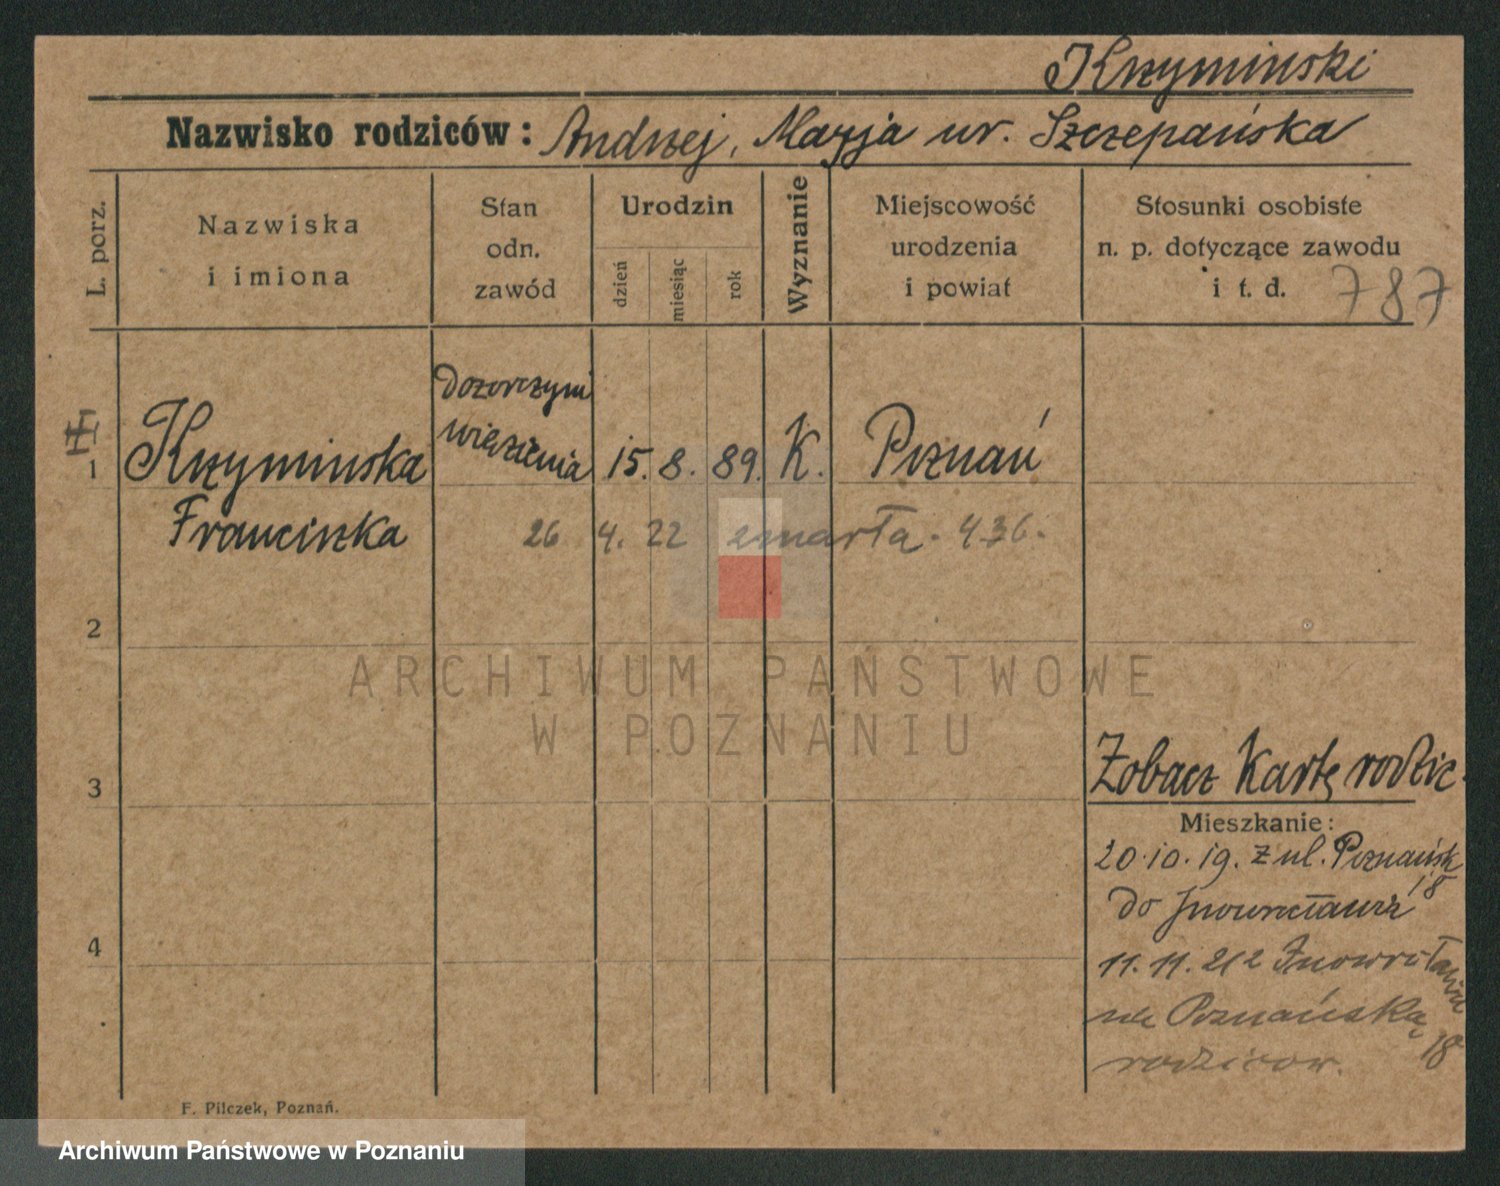 Krzyminski
Nazwisko rodziców: Andrzej, Marja ur. Szczepańska
L. porz.
Nazwiska
i imiona
Stan
odn.
zawód
Urodzin
dzień
miesiąc
rok
Wyznanie
Miejscowość
urodzenia
i powiat
Stosunki osobiste
n. p. dotyczące zawodu
i t. d.
787
1
Krzyminska
Franciszka
Dozorczyni
więzienia
15. 8. 89. K. Poznań
26 4. 22 zmarła. 436.
2
3
4
Zobacz Kartę rodzic.
Mieszkanie:
20.10.19. z ul. Poznańsk
18
do Inowrocławia
11.11.21 z Inowrocławia
na Poznańską
18
rodzicow.
F. Pilczek, Poznań.
ARCHIWUM PAŃSTWOWE
W POZNANIU
Archiwum Państwowe w Poznaniu